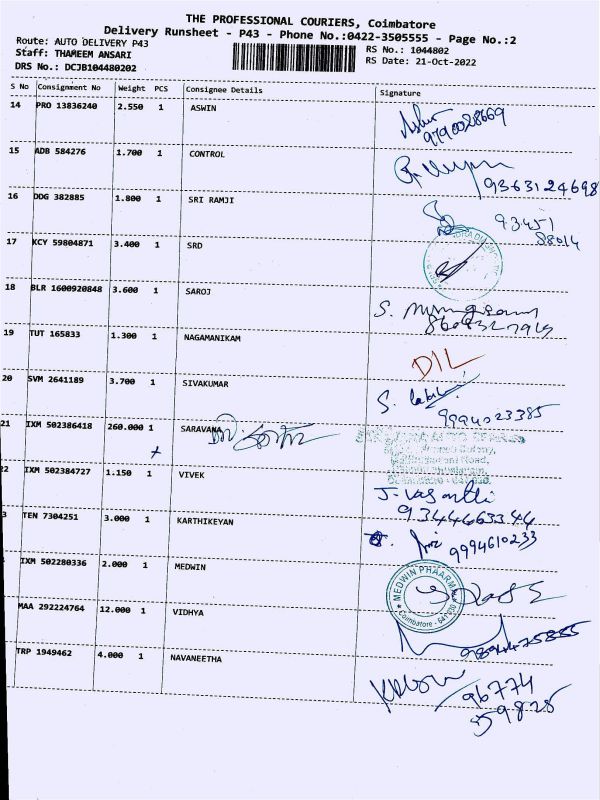 THE PROFESSIONAL COURIERS, Coimbatore
Delivery Runsheet - P43 - Phone No.:0422-3505555 - Page No.:2
Route: AUTO DELIVERY P43
Staff: THAMEEM ANSARI
DRS No.: DCJB104480202
RS No.: 1044802
RS Date: 21-Oct-2022
S No Consignment No Weight PCS Consignee Details Signature
14 PRO 13836240 2.550 1 ASWIN
9790028669
15 ADB 584276 1.700 1 CONTROL
9363124698
16 DDG 382885 1.800 1 SRI RAMJI
93451
88014
17 KCY 59804871 3.400 1 SRD
18 BLR 1600920848 3.600 1 SAROJ
19 TUT 165833 1.300 1 NAGAMANIKAM
DIL
20 SVM 2641189 3.700 1 SIVAKUMAR
9994023385
21 IXM 502386418 260.000 1 SARAVANA
2 IXM 502384727 1.150 1 VIVEK
J. Vasanthi
9344663344
3 TEN 7304251 3.000 1 KARTHIKEYAN
9994610233
IXM 502280336 2.000 1 MEDWIN
MEDWIN PHAARMA
Coimbatore - 641
MAA 292224764 12.000 1 VIDHYA
9894475885
TRP 1949462 4.000 1 NAVANEETHA
96774
59828